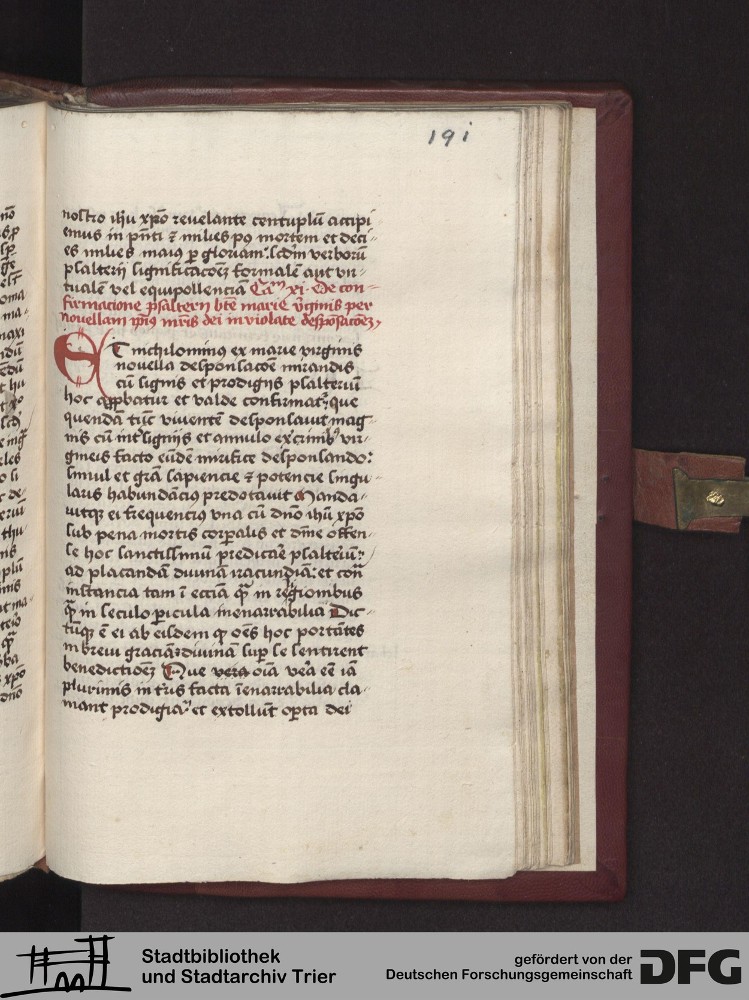 191
nostro ihu xpo revelante centuplū accipi
emus in pn̄ti ⁊ milies pꝰ mortem et deci
es milies maiꝰ p̱ gloriam. scd̄m verborū
psalterij significacōeȝ formalē aut vir
tualē vel equipollenciā Cam̄ xi. De con
firmacione psalterij btē marie v̓ginis per
novellam ipiꝰ mr̄is dei inviolate desponsacōeȝ
Et nichilominꝰ ex marie virginis
novella desponsacōe mirandis
cū signis et prodigijs psalteriū
hoc appbatur et valde confirmat̓. que
quendā tūc viventē desponsavit mag
nis cū int̓signijs et annulo ex crinibꝰ vir
gineis facto eūdē mirifice desponsando:
simul et grā sapiencie ⁊ potencie singu
laris habundāciꝰ predotavit Manda
vitqꝫ ei frequenciꝰ vna cū dnō ihū xpō
sub pena mortis corp̱alis et dīne offen
se hoc sanctissimū predicare psalteriū:
ad placandā divinā iracundiā: et con̄
instancia tam ī ecc̄ia qꝫ̄ in regionibus
qꝫ̄ in seculo p̱icula inenarrabilia Dic
tūqꝫ ē ei ab eisdem qꝫ oēs hoc portātes
in brevi graciā: divinā sup̱ se sentirent
benedictioēȝ Que vera oīa vera eē iā
plurimis in tr̄is facta īenarrabilia cla
mant prodigia: et extollūt oper̄a dei
Stadtbibliothek
und Stadtarchiv Trier
gefördert von der
Deutschen Forschungsgemeinschaft
DFG